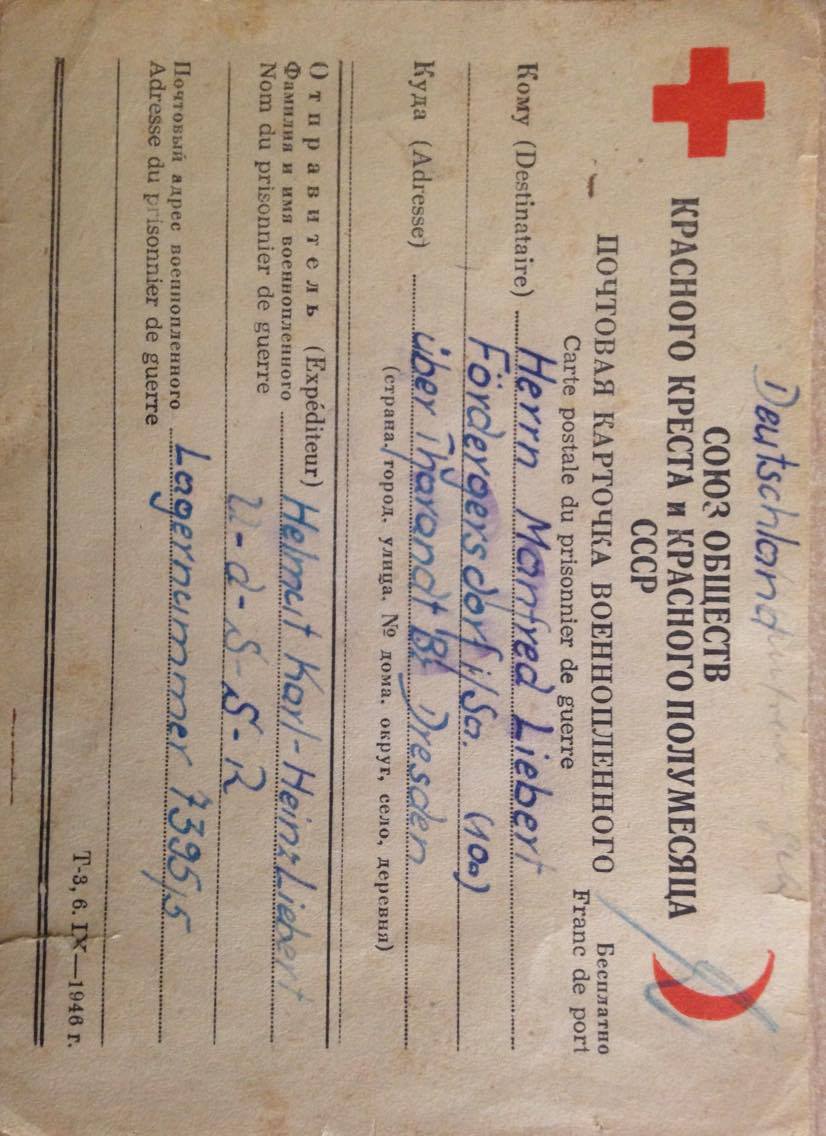 Deutschland
СОЮЗ ОБЩЕСТВ
КРАСНОГО КРЕСТА и КРАСНОГО ПОЛУМЕСЯЦА
СССР
ПОЧТОВАЯ КАРТОЧКА ВОЕННОПЛЕННОГО
Бесплатно
Carte postale du prisonnier de guerre
Franc de port
Кому (Destinataire) Herrn Manfred Liebert
Fördergersdorf i/Sa. (10a)
Куда (Adresse) über Tharandt Bz Dresden
(страна, город, улица, № дома, округ, село, деревня)
Отправитель (Expéditeur)
Фамилия и имя военнопленного Helmut Karl-Heinz Liebert
Nom du prisonnier de guerre
U-d-S-S-R
Почтовый адрес военнопленного Lagernummer 7395/5
Adresse du prisonnier de guerre
Т-3, 6. IX—1946 г.